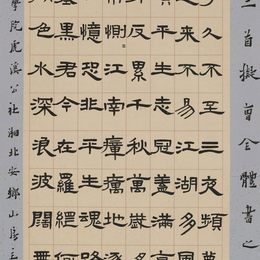 二首擬曾全體書之
久不至三夜頻夢
來不易江湖多風
負平生志冠蓋滿京
反累千秋萬歲名
惻江南瘴癘地逐
憶恐非平生魂路
黑君今在羅網何
色水深浪波闊無
學院虎溪公社湘北安鄉山房主